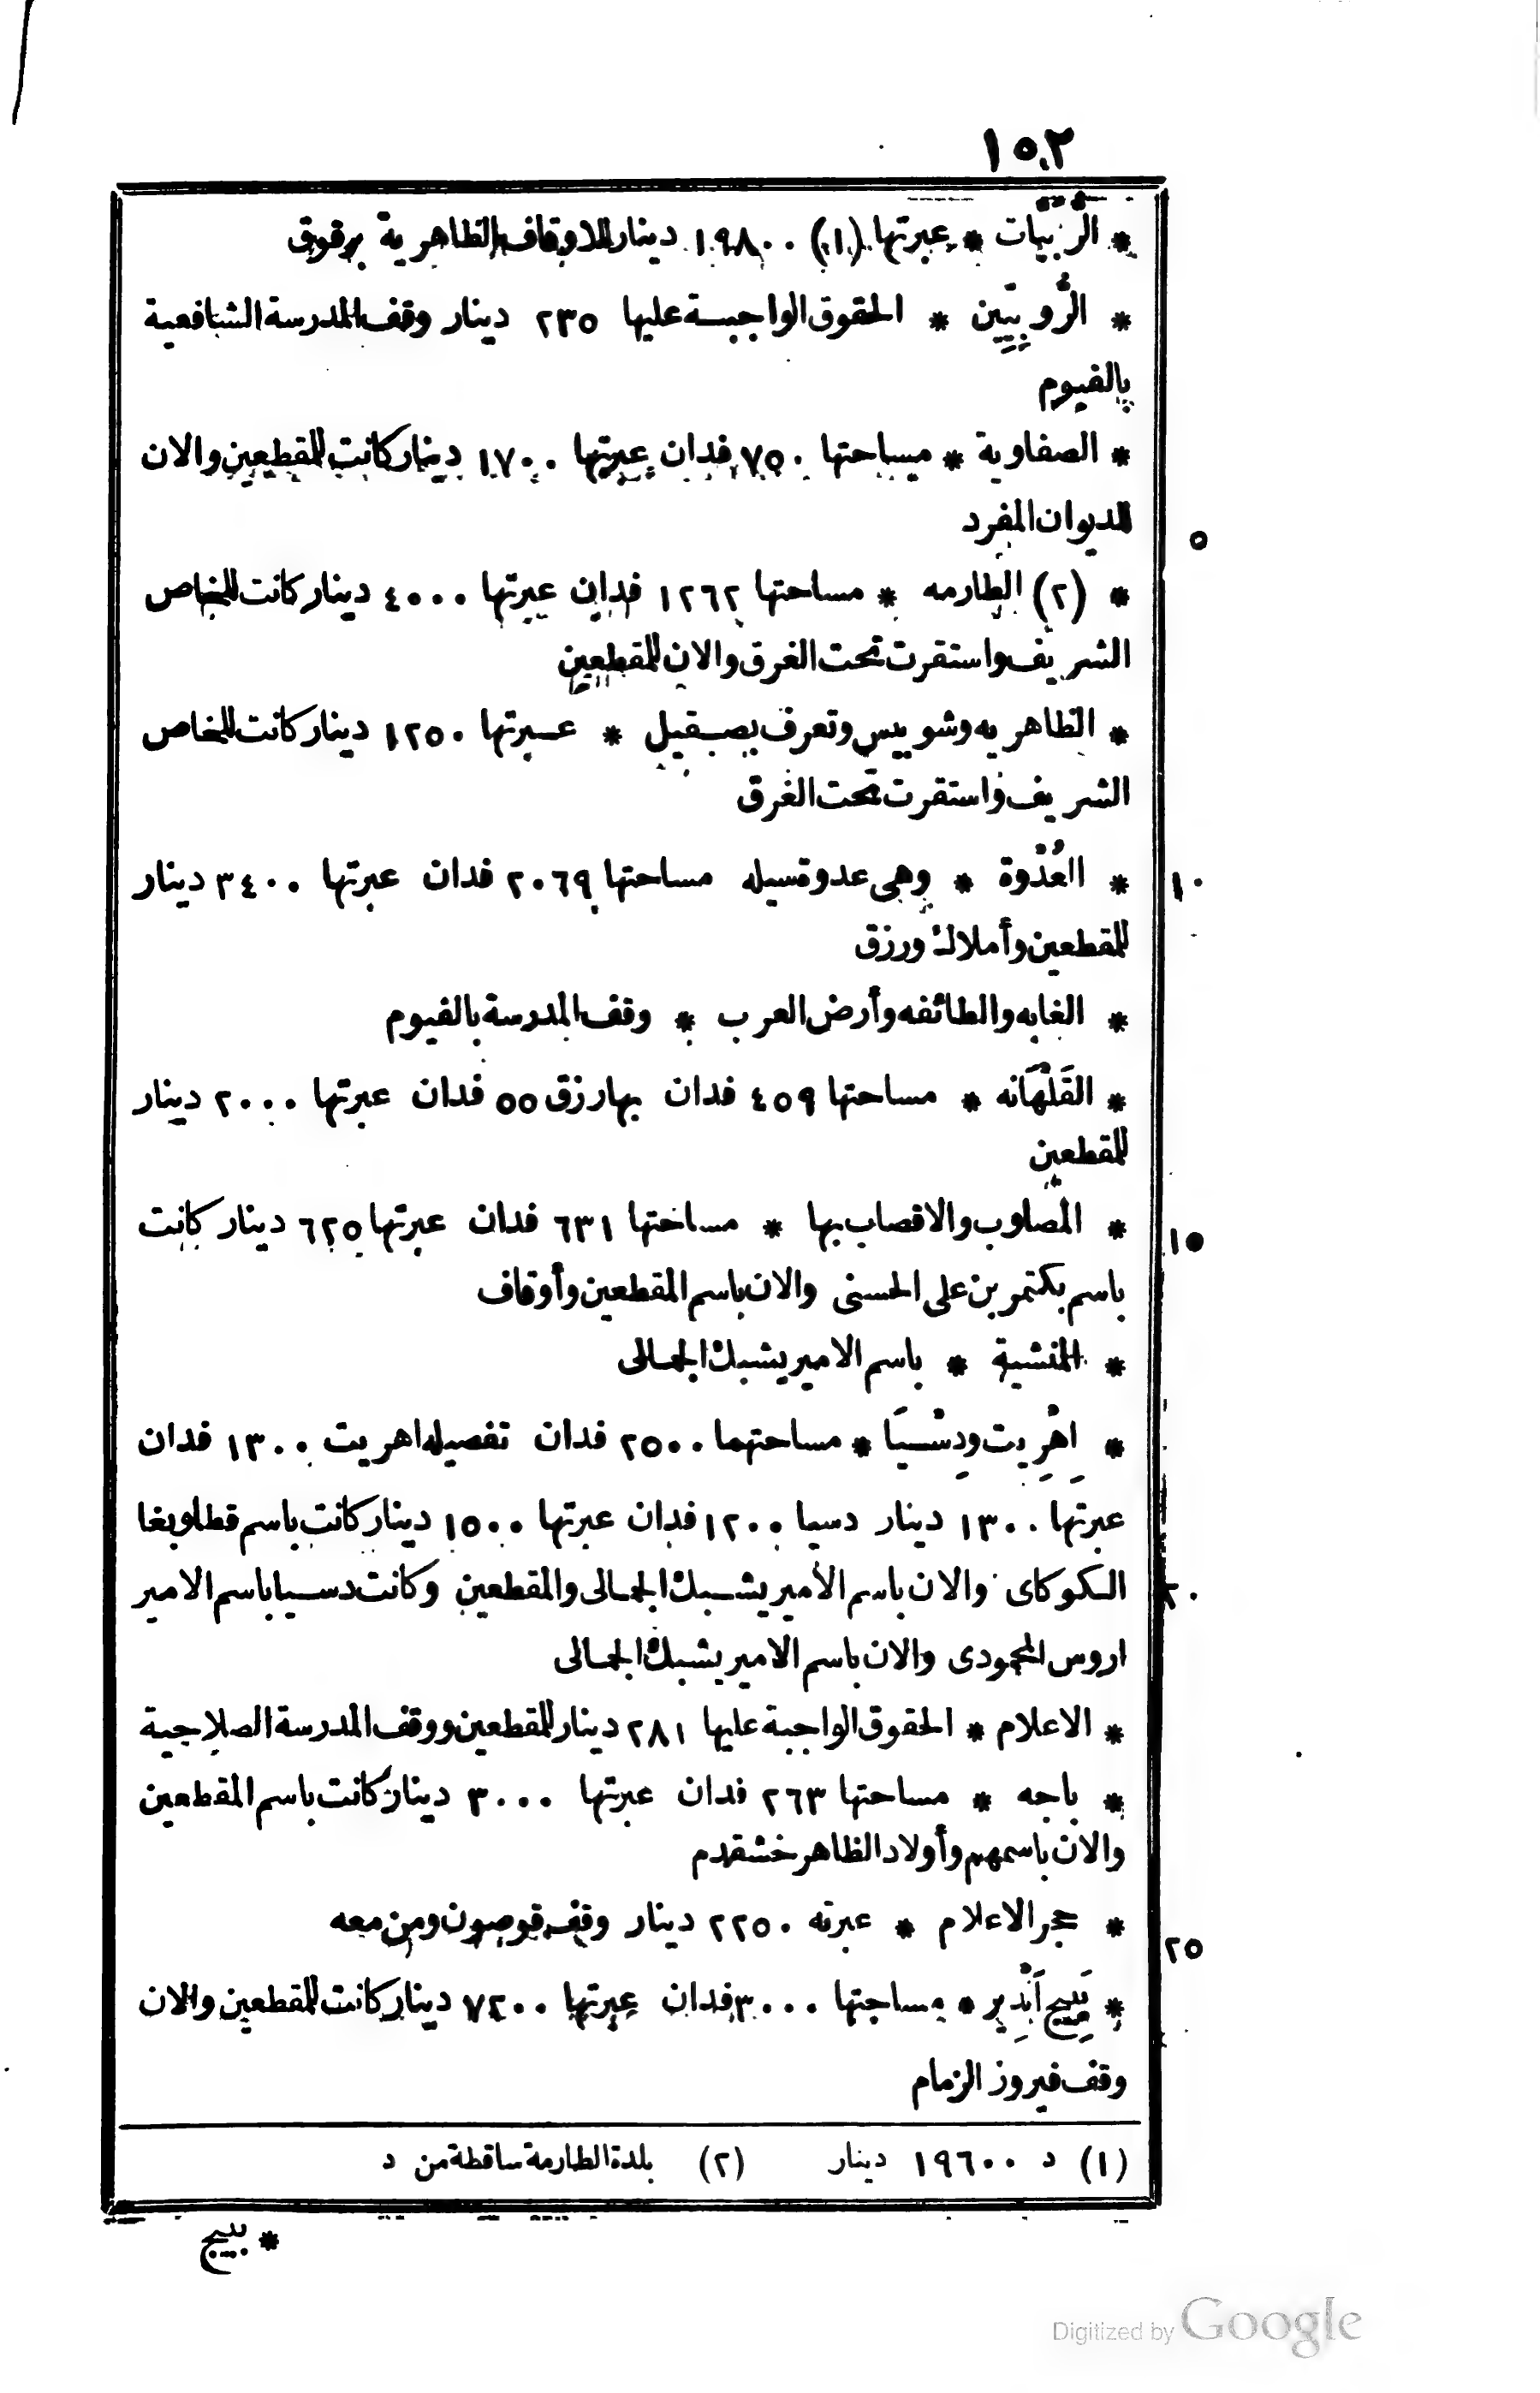 ١٥٢
* الرُّبيّات * عبرتها (١) ١٩٨٠٠ دينار للاوقاف الظاهرية برقوق
* الرُّوبِيِّين * الحقوق الواجبة عليها ٢٣٥ دينار وقف المدرسة الشافعية
بالفيوم
* الصفاوية * مساحتها ٧٥٠ فدان عبرتها ١٧٠٠ دينار كانت للمقطعين والان
٥
للديوان المفرد
* (٢) الطارمه * مساحتها ١٢٦٢ فدان عبرتها ٤٠٠٠ دينار كانت للخاص
الشريف واستقرت تحت الغرق والان للمقطعين
* الظاهريه وشوبيس وتعرف بصبقيل * عبرتها ١٢٥٠ دينار كانت للخاص
الشريف واستقرت تحت الغرق
* العُدْوة * وهى عدوة سيله مساحتها ٢٠٦٩ فدان عبرتها ٣٤٠٠ دينار
١٠
للمقطعين وأملاك ورزق
* الغابه والطائفه وأرض العرب * وقف المدرسة بالفيوم
* القَلْهَانه * مساحتها ٤٥٩ فدان بها رزق ٥٥ فدان عبرتها ٢٠٠٠ دينار
للمقطعين
* المصلوب والاقصاب بها * مساحتها ٦٣١ فدان عبرتها ٦٢٥ دينار كانت
١٥
باسم بكتمر بن على الحسنى والان باسم المقطعين وأوقاف
* المنشية * باسم الامير يشبك الجمالى
* اِهْرِيت ودِسْيَا * مساحتهما ٢٥٠٠ فدان تفصيله اهريت ١٣٠٠ فدان
عبرتها ١٣٠٠ دينار دسيا ١٢٠٠ فدان عبرتها ١٥٠٠ دينار كانت باسم قطلوبغا
الكوكاى والان باسم الأمير يشبك الجمالى والمقطعين وكانت دسيا باسم الامير
٢٠
اروس المحمودى والان باسم الامير يشبك الجمالى
* الاعلام * الحقوق الواجبة عليها ٢٨١ دينار للمقطعين ووقف المدرسة الصلاحية
* باجه * مساحتها ٢٦٣ فدان عبرتها ٣٠٠٠ دينار كانت باسم المقطعين
والان باسمهم وأولاد الظاهر خشقدم
* حجر الاعلام * عبرته ٢٢٥٠ دينار وقف قوصون ومن معه
٢٥
* بَيِيج اَنْدِير * مساحتها ٣٠٠٠ فدان عبرتها ٧٢٠٠ دينار كانت للمقطعين والان
وقف فيروز الزمام
(١) د ١٩٦٠٠ دينار (٢) بلدة الطارمة ساقطة من د
* بييج
Digitized by Google